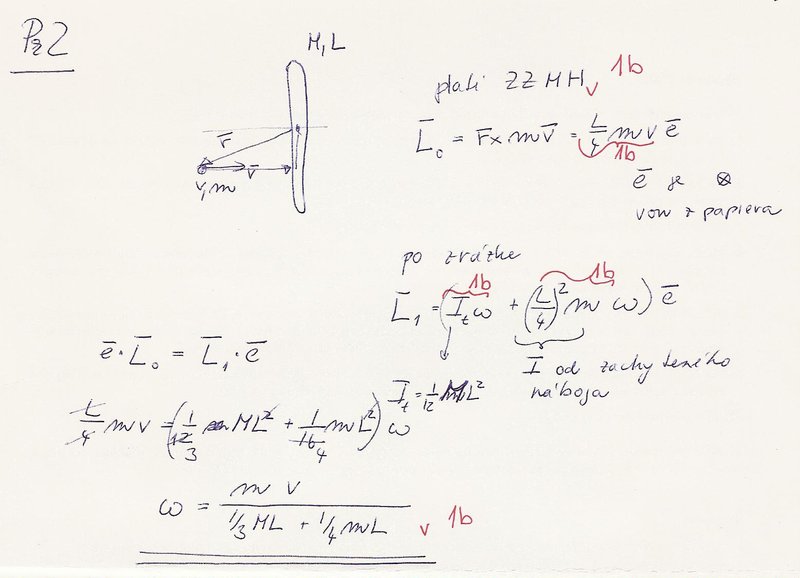 Pr 2
M, L
r̄
v̄
v, m
platí ZZMH v 1b
L̄₀ = r̄ × m v̄ = L/4 m v ē
1b
ē je ⊗
von z papiera
po zrážke
1b 1b
L̄₁ = (I_t ω + (L/4)² m ω) ē
I od zachyteného
náboja
I_t = 1/12 ML²
ē · L̄₀ = L̄₁ · ē
L/4 m v = (1/12 ML² + 1/16 mL²) ω
3 4
ω = m v / (1/3 ML + 1/4 mL) v 1b